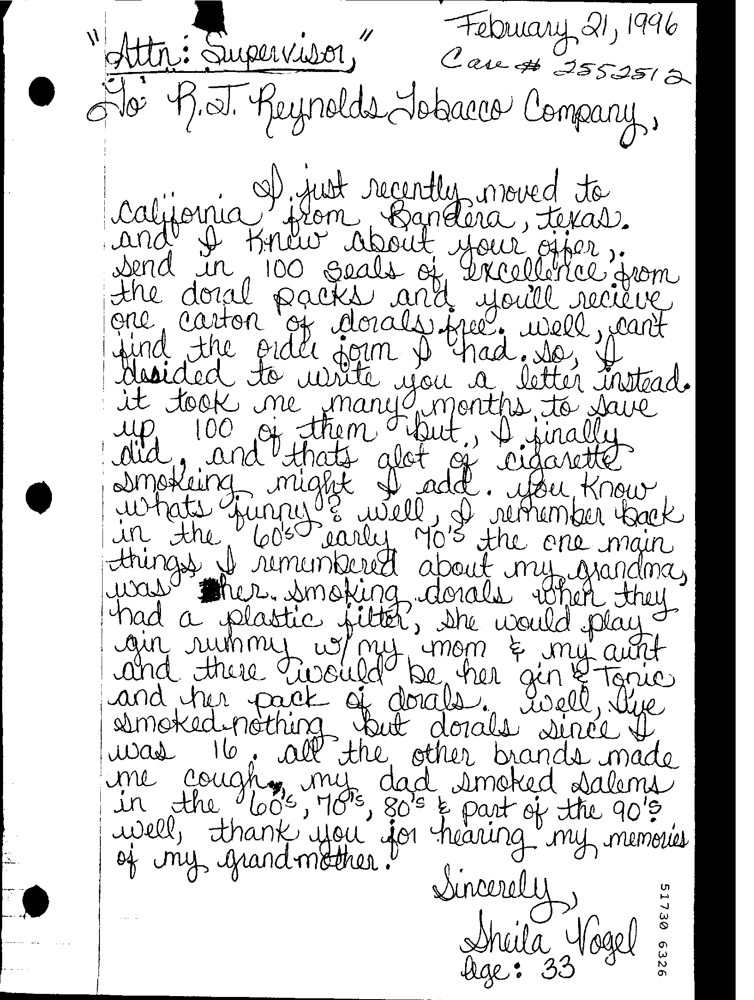 February 21, 1996
"Attn: Supervisor,"
Case # 2552512
To R.J. Reynolds Tobacco Company,
I just recently moved to
california from Bandera, texas.
and I Knew about your offer,.
send in 100 seals of excellence from
the doral packs and you'll recieve
one carton of dorals free. well, can't
find the order form I had. so, I
desided to write you a letter instead.
it took me many months, to save
up 100 of them but, I finally
did, and thats alot of cigarette
smokeing might I add. you Know
whats funny? well, I remember back
in the 60's early 70's the one main
things I remembered about my grandma,
was her. smoking dorals when they
had a plastic filter, she would play
gin rummy w/ my mom & my aunt
and there would be her gin & Tonic
and her pack of dorals. well, I've
smoked nothing but dorals since I
was 16. all the other brands made
me cough, my dad smoked salems
in the 60's, 70's, 80's & part of the 90's
well, thank you for hearing my memories
of my grandmother!
Sincerely,
Sheila Vogel
Age: 33
51730 6326